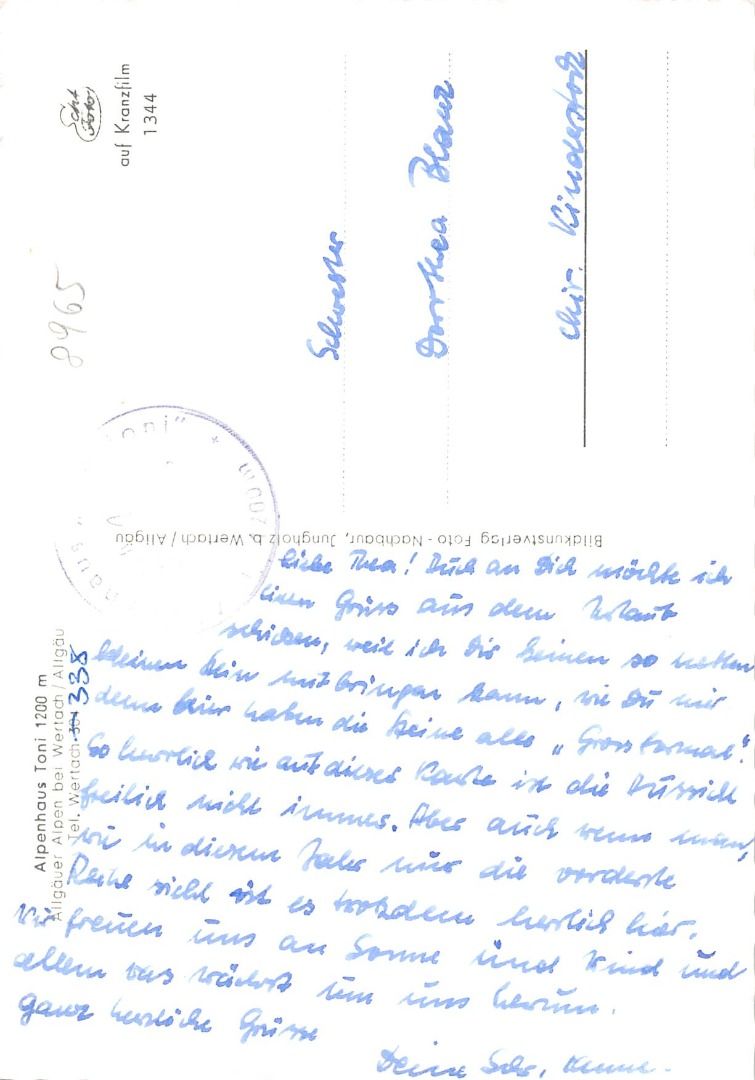 Alpenhaus Toni 1200 m
Allgäuer Alpen bei Wertach/Allgäu
Tel. Wertach 301 338
8965
auf Kranzfilm
1344
Toni" *
Bildkunstverlag Foto-Nachbaur, Jungholz b. Wertach/Allgäu
Schwester
Dorothea Blanz
chir. Kinderstat
Liebe Thea! Auch an Dich möchte ich
einen Gruss aus dem Urlaub
schicken, weil ich Dir keinen so netten
kleinen Stein mitbringen kann, wie Du mir
denn hier haben die Steine alle „Grossformat".
So herrlich wie auf dieser Karte ist die Aussicht
freilich nicht immer. Aber auch wenn man,
wie in diesem Jahr nur die vorderste
Reihe sieht ist es trotzdem herrlich hier.
Wir freuen uns an Sonne und Wind und
allem was wächst um uns herum.
Ganz herzliche Grüsse
Deine Schw.